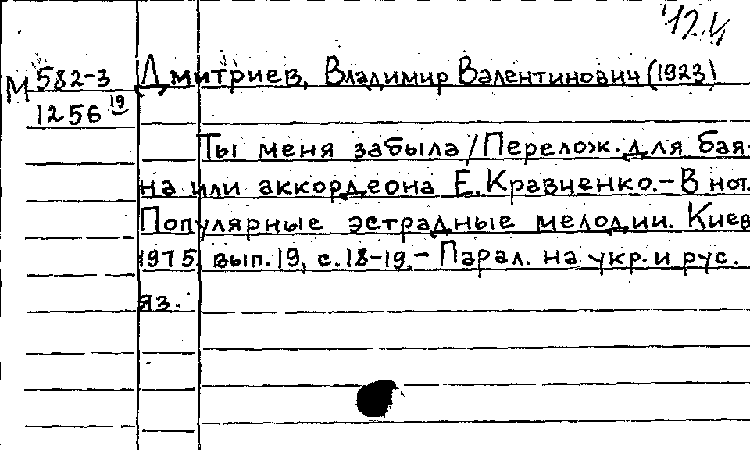 12.4
М 582-3 Дмитриев, Владимир Валентинович (1923)
1256 19
Ты меня забыла / Перелож. для бая-
на или аккордеона Е. Кравченко. – В нот.
Популярные эстрадные мелодии. Киев
1975, вып. 19, с. 18-19. – Парал. на укр. и рус.
яз.